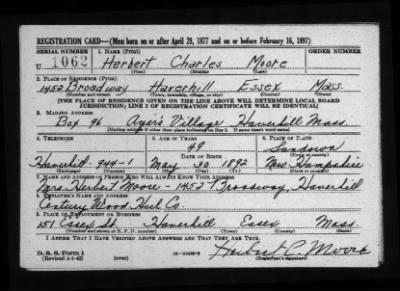 REGISTRATION CARD—(Men born on or after April 28, 1877 and on or before February 16, 1897)
SERIAL NUMBER 1. NAME (Print) ORDER NUMBER
U 1062 Herbert Charles Moore
(First) (Middle) (Last)
2. PLACE OF RESIDENCE (Print)
1452 Broadway Haverhill Essex Mass.
(Number and street) (Town, township, village, or city) (County) (State)
[THE PLACE OF RESIDENCE GIVEN ON THE LINE ABOVE WILL DETERMINE LOCAL BOARD
JURISDICTION; LINE 2 OF REGISTRATION CERTIFICATE WILL BE IDENTICAL]
3. MAILING ADDRESS
Box 96 Ayer's Village Haverhill Mass.
[Mailing address if other than place indicated on line 2. If same insert word same]
4. TELEPHONE 5. AGE IN YEARS 6. PLACE OF BIRTH
49 Sandown
DATE OF BIRTH (Town or county)
Haverhill - 944-1 May 30 1892 New Hampshire
(Exchange) (Number) (Mo.) (Day) (Yr.) (State or country)
7. NAME AND ADDRESS OF PERSON WHO WILL ALWAYS KNOW YOUR ADDRESS
Mrs Herbert Moore - 1452 Broadway, Haverhill
8. EMPLOYER'S NAME AND ADDRESS
Century Wood Heel Co.
9. PLACE OF EMPLOYMENT OR BUSINESS
151 Essex St. Haverhill Essex Mass.
(Number and street or R. F. D. number) (Town) (County) (State)
I AFFIRM THAT I HAVE VERIFIED ABOVE ANSWERS AND THAT THEY ARE TRUE.
D. S. S. Form 1
(Revised 4-1-42) (over) Herbert C. Moore
(Registrant's signature)